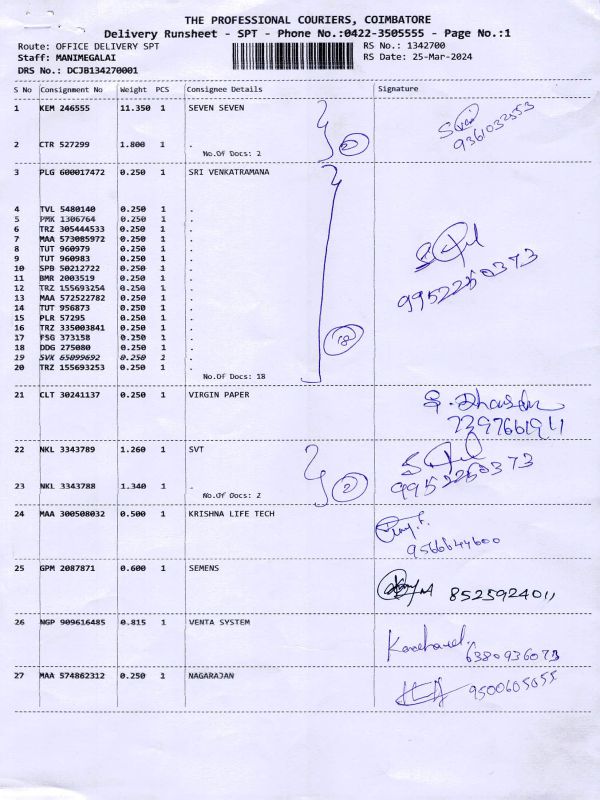 THE PROFESSIONAL COURIERS, COIMBATORE
Delivery Runsheet - SPT - Phone No.:0422-3505555 - Page No.:1
Route: OFFICE DELIVERY SPT RS No.: 1342700
Staff: MANIMEGALAI RS Date: 25-Mar-2024
DRS No.: DCJB134270001
S No Consignment No Weight PCS Consignee Details Signature
1 KEM 246555 11.350 1 SEVEN SEVEN
9361032553
2 CTR 527299 1.800 1 .
No.Of Docs: 2 2
3 PLG 600017472 0.250 1 SRI VENKATRAMANA
4 TVL 5480140 0.250 1 .
5 PMK 1306764 0.250 1 .
6 TRZ 305444533 0.250 1 .
7 MAA 573085972 0.250 1 .
8 TUT 960979 0.250 1 .
9 TUT 960983 0.250 1 .
10 SPB 50212722 0.250 1 .
11 BMR 2003519 0.250 1 .
12 TRZ 155693254 0.250 1 .
13 MAA 572522782 0.250 1 .
14 TUT 956873 0.250 1 .
15 PLR 57295 0.250 1 .
16 TRZ 335003841 0.250 1 .
17 FSG 373158 0.250 1 .
18 DDG 275080 0.250 1 .
19 SVK 65099692 0.250 1 .
20 TRZ 155693253 0.250 1 .
No.Of Docs: 18 18
9952250373
21 CLT 30241137 0.250 1 VIRGIN PAPER
7397661911
22 NKL 3343789 1.260 1 SVT
9952250373
23 NKL 3343788 1.340 1 .
No.Of Docs: 2 2
24 MAA 300508032 0.500 1 KRISHNA LIFE TECH
9566644600
25 GPM 2087871 0.600 1 SEMENS
8525924011
26 NGP 909616485 0.815 1 VENTA SYSTEM
6380936073
27 MAA 574862312 0.250 1 NAGARAJAN
9500605055